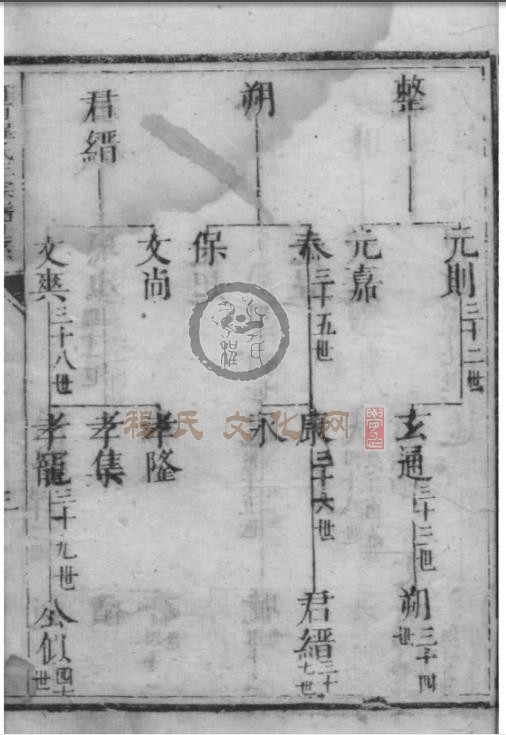 整
元則三十二世
元嘉
玄通三十三世
朔三十四世
朔
泰三十五世
保
康三十六世
永
君縉三十七世
君縉
文尚
文爽三十八世
孝隆
孝集
孝寵三十九世
程氏文化网